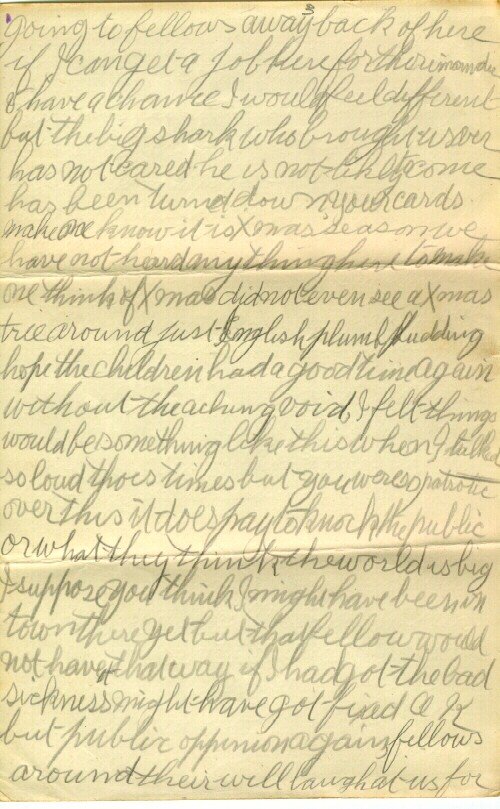 going to fellows away us back of here
if I can get a job here for their
I have a chance I would feel different
but the big shark who brought us over
has not cared he is not likely to come
has been turned down your cards
make one know it is Xmas season we
have not heard anything here to make
one think of Xmas did not even see a Xmas
tree around just English plumb pudding
hope the children had a good time again
without the aching void I felt things
would be something like this when I talked
so loud thoes times but you were so patrotic
over this it does pay to knock the public
or what they think the world is big
I suppose you think I might have been in
town there yet but that fellow would
not have it that way if I had got the bad
sickness might have got fixed O K
but public oppinion again fellows
around their will laugh at us for